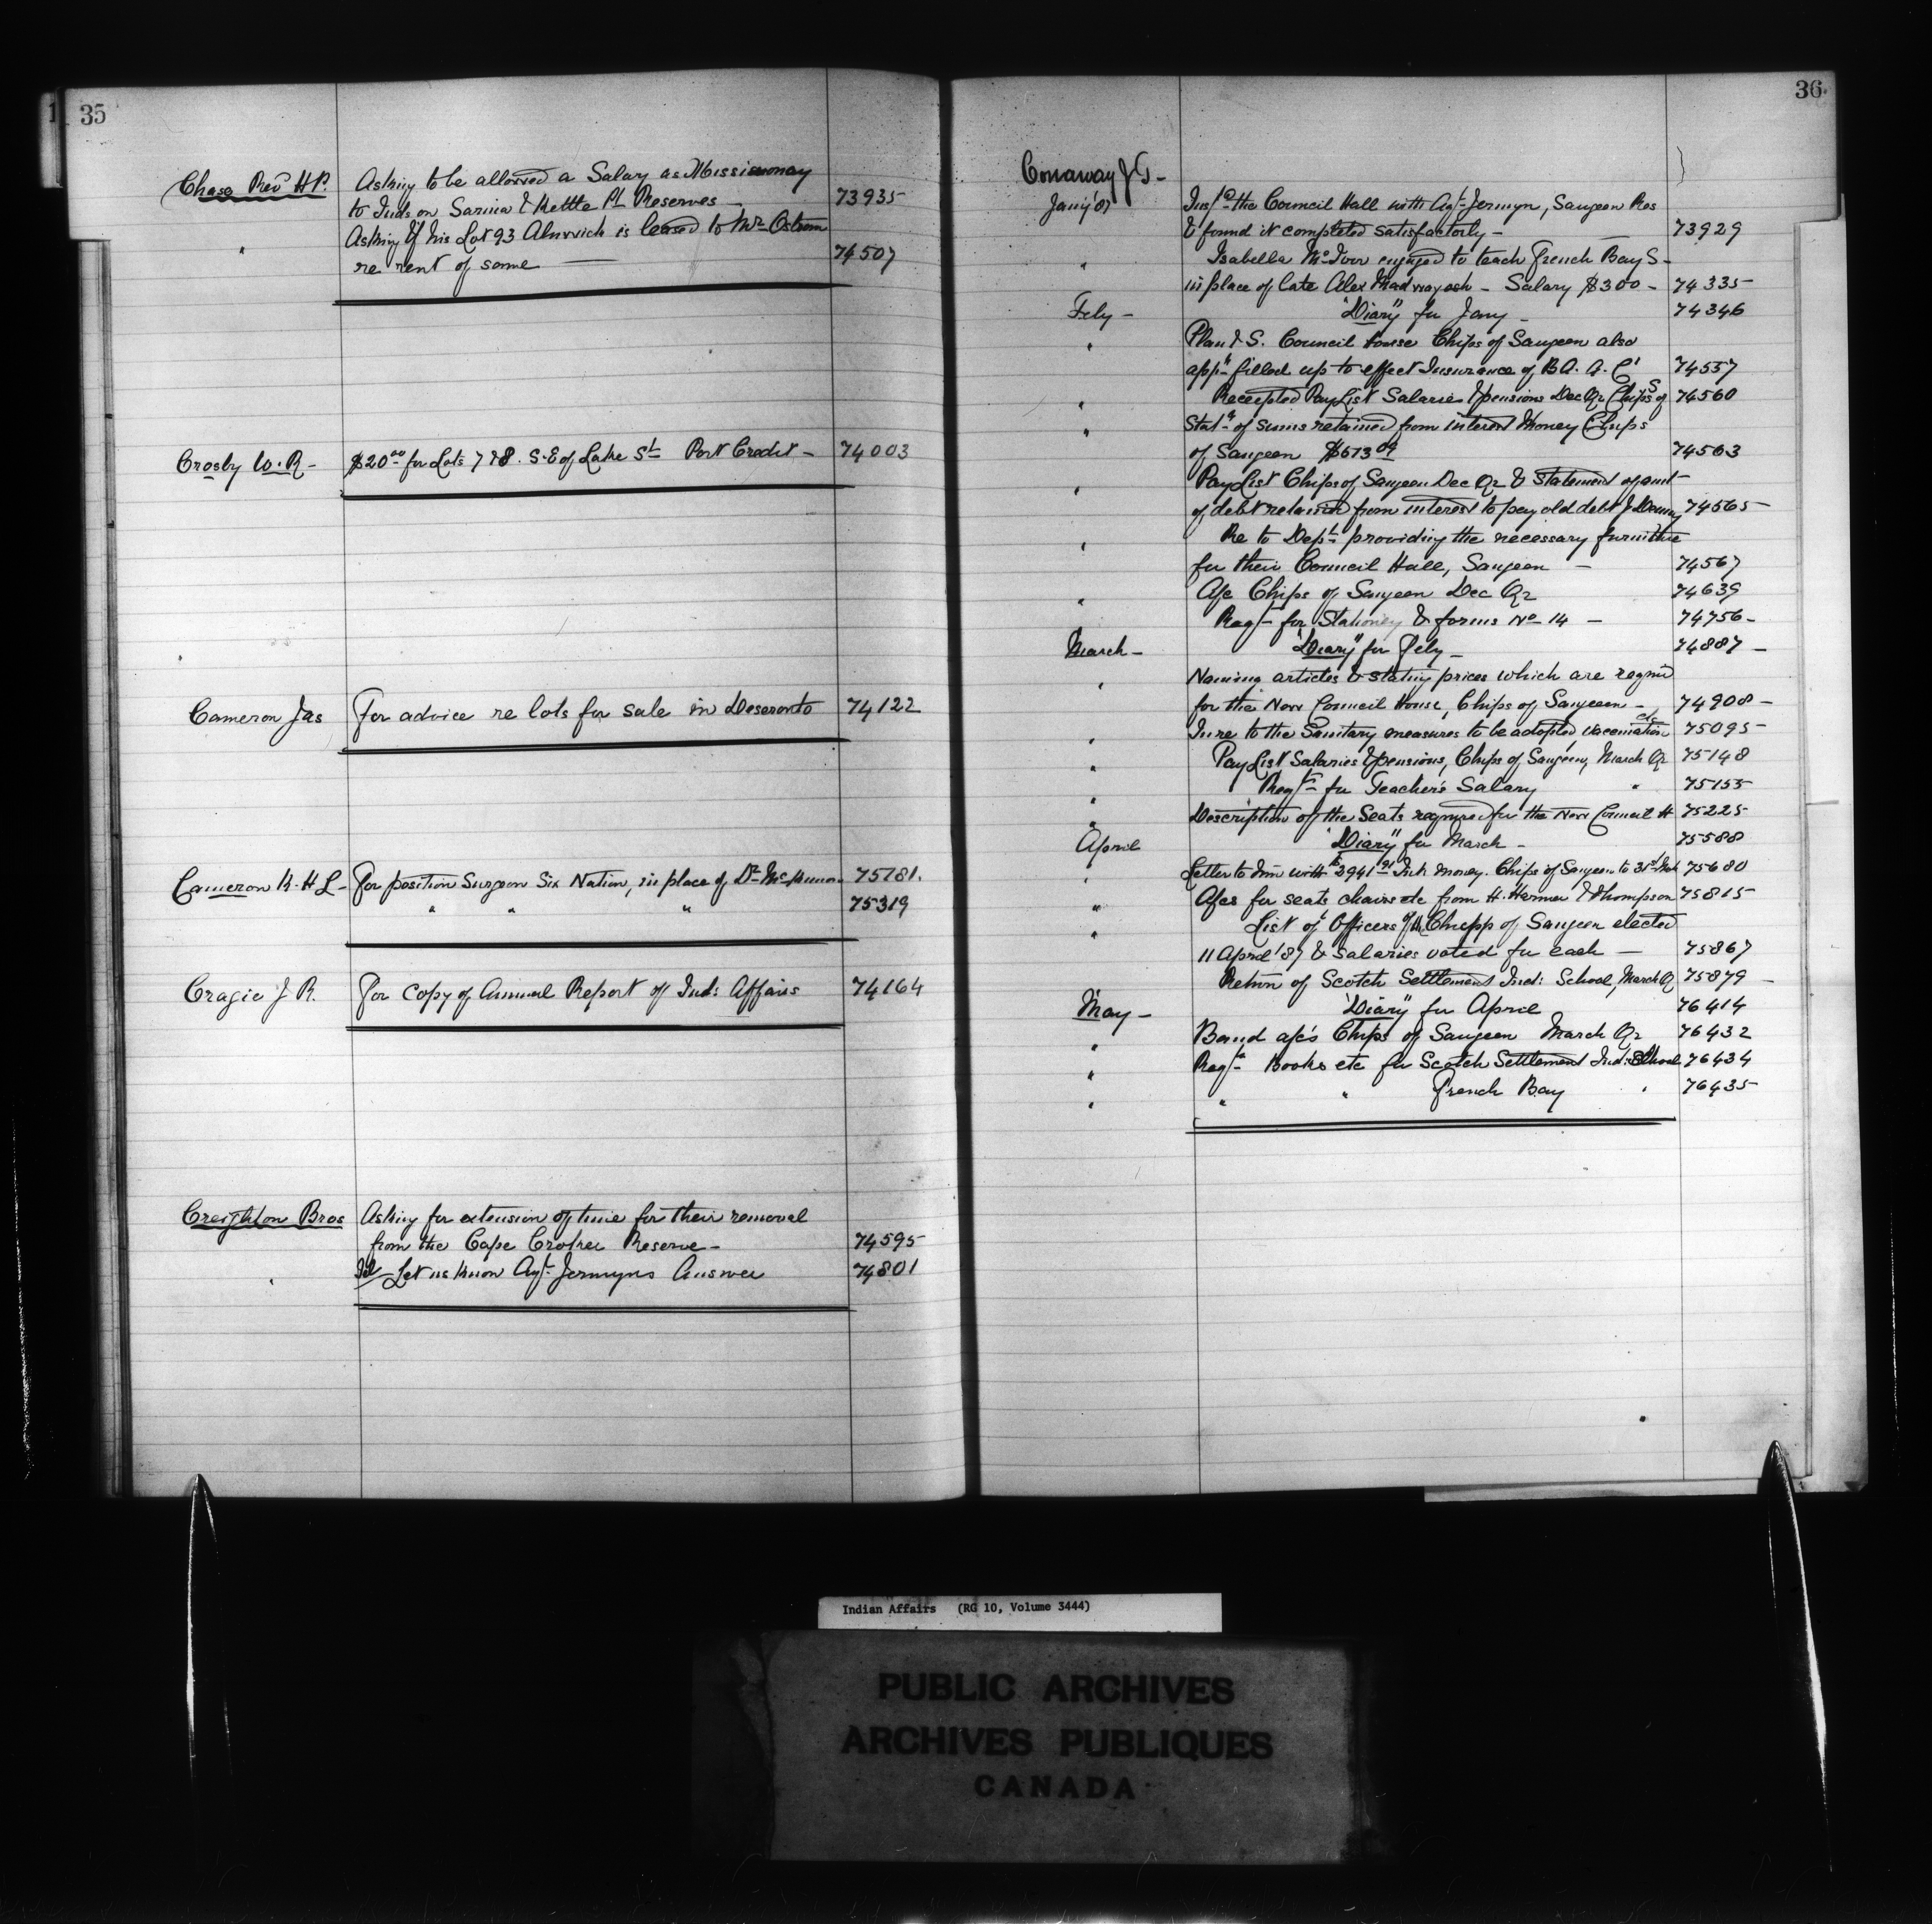 35
Chase Revd H P. Asking to be allowed a Salary as Missionary
to Inds on Sarnia & Kettle Pt Reserves — 73935
" Asking if his Lot 93 Alnwick is leased to Mr Ostrom
re rent of same — 74507
Crosby W. R — $20.00 for Lots 7 & 8. S. E of Lake St Port Credit — 74003
Cameron Jas For advice re lots for sale in Deseronto 74122
Cameron K. H L — For position Surgeon Six Nation, in place of Dr 75181.
" " " 75319
Cragie J R. For Copy of Annual Report of Ind: Affairs 74164
Creighton Bros Asking for extension of time for their removal
from the Cape Croker Reserve — 74595
" Tel Let us know Agt Jermyns Answer 74801
36
Conaway J T —
Jany '87 Inspd the Council Hall with Agt Jermyn, Saugeen Res
& found it completed satisfactorly — 73929
" Isabella McIver engaged to teach French Bay S —
in place of late Alex Madwayosh — Salary $300 — 74335
Feby — "Diary" for Jany — 74346
" Plan & S. Council house Chips of Saugeen also
appn filled up to effect Insurance of B. A. A. Co 74557
" Receipted Pay List Salaries & pensions Dec Qr Chips of S 74560
" Statt of sums retained from interest Money Chips
of Saugeen $673.09 74563
" Pay List Chips of Saugeen Dec Qr & Statement of amt
of debt retained from interest to pay old debt J 74565
" Re to Dept providing the necessary furniture
for their Council Hall, Saugeen — 74567
" A/c Chips of Saugeen Dec Qr 74639
Reqt for Stationey & forms No 14 — 74756 —
March — "Diary" for Feby — 74887 —
" Naming articles & stating prices which are reqrd
for the New Council House, Chips of Saugeen — 74908 —
" In re to the Sanitary measures to be adopted vaccination etc 75095
" Pay List Salaries & pensions, Chips of Saugeen, March Qr 75148
" Reqtn for Teacher's Salary " 75155
" Description of the Seats required for the New Council H 75225
April "Diary" for March — 75588
" Letter to him with $2941.91 Int. money. Chips of Saugeen to 31st Mch 75680
" A/cs for seats chairs etc from H. Harmer & Thompson 75815
" List of Officers of the Chipp of Saugeen elected
11 April '87 & Salaries voted for each — 75867
Return of Scotch Settlement Ind: School, March Q 75879 —
May — "Diary" for April 76414
" Band a/c's Chips of Saugeen March Qr 76432
" Reqt Books etc for Scotch Settlement Ind: School 76434
" " " French Bay " 76435
Indian Affairs (RG 10, Volume 3444)
PUBLIC ARCHIVES
ARCHIVES PUBLIQUES
CANADA